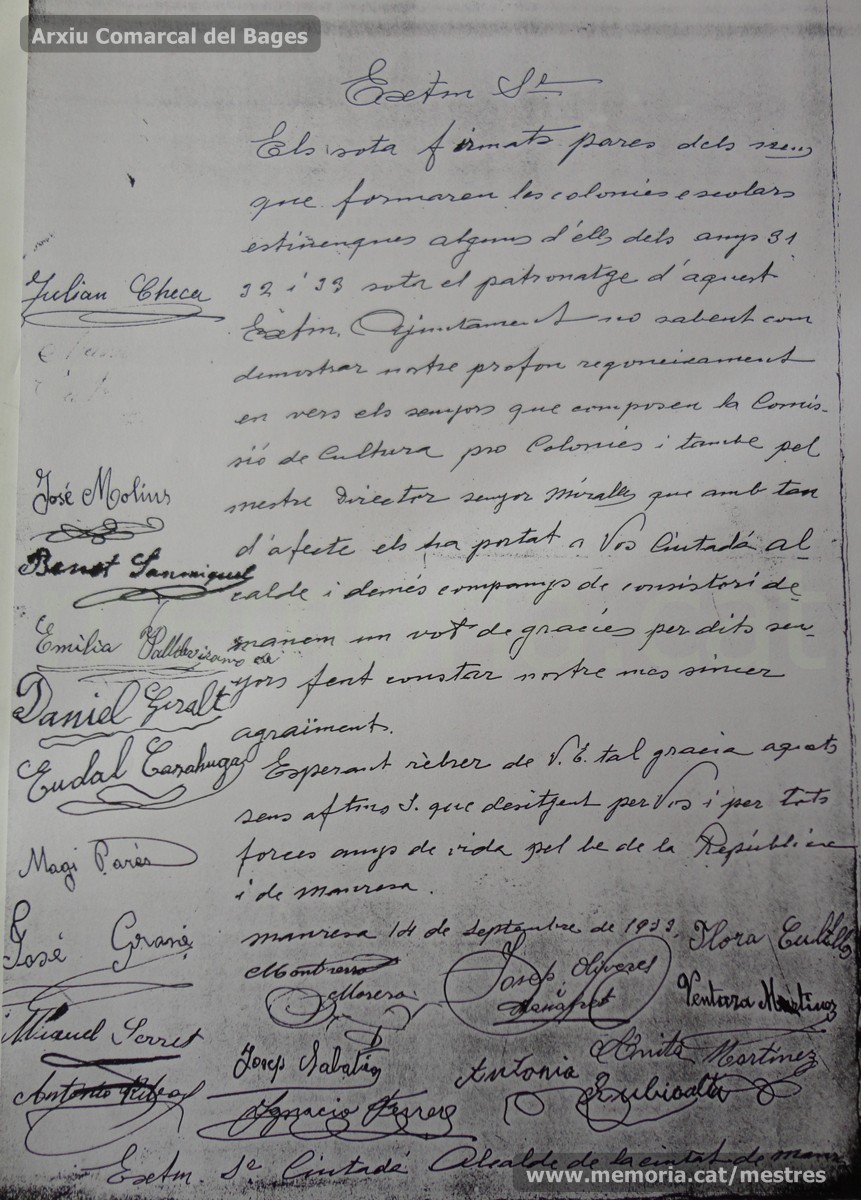 Arxiu Comarcal del Bages
Exetm Sr
Els sota firmats pares dels
que formaren les colonies escolars
estiuenques alguns d'ells dels anys 31
32 i 33 sota el patronatge d'aquest
Exetm. Ajuntament no sabent com
demostrar nostre profon regoneixament
en vers els senyors que composen la Comis-
sió de Cultura pro Colonies i tambe pel
mestre Director senyor Miralles que amb tan
d'afecte els ha portat a Vos Ciutadá al-
calde i demés companys de consistori de-
manem un vot de gracies per dits sen-
yors fent constar nostre mes sincer
agraïment.
Esperant rèbrer de V. E. tal gracia aquets
seus aftms S. que desitgent per Vos i per tots
forces anys de vida pel be de la República
i de Manresa.
Manresa 14 de Septembre de 1933.
Julian Checa
José Molins
Benet Sanmiquel
Emilia
Daniel Giralt
Eudal Casahuga
Magi Parés
José
Miquel Serret
Antonio Ribas
Morera
Josep Oliveres
Flora
Ventura Martinez
Josep Sabatia
Ignacio Ferrer
Antonia Rubiralta
Anita Martinez
Exetm. Sr Ciutadá Alcalde de la ciutat de
www.memoria.cat/mestres